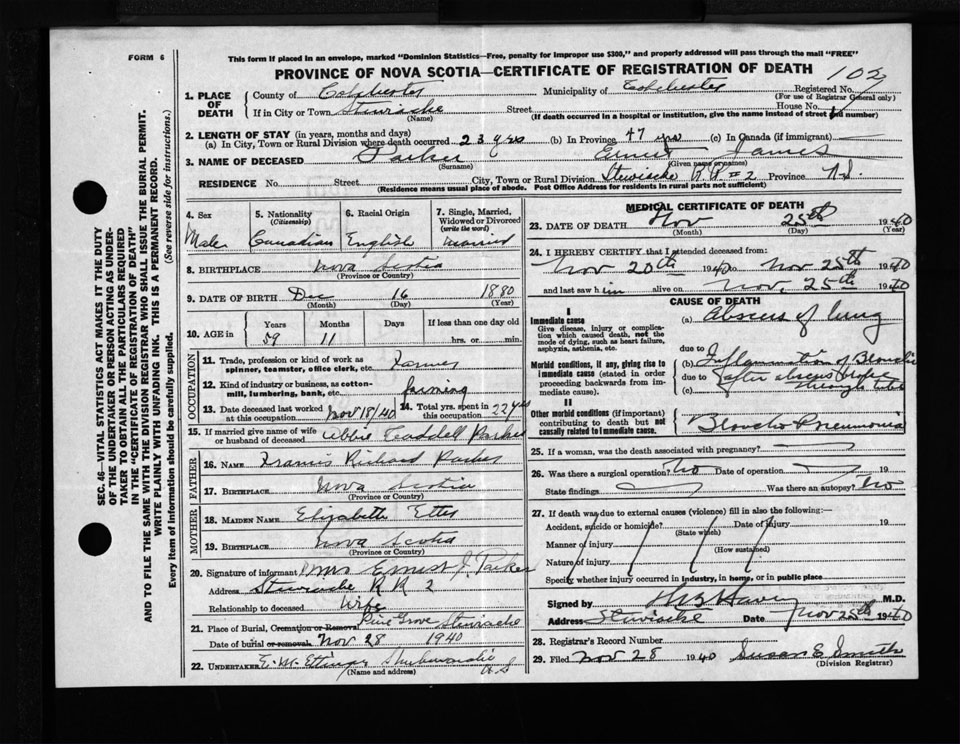 FORM 6
This form if placed in an envelope, marked "Dominion Statistics—Free, penalty for improper use $300," and properly addressed will pass through the mail "FREE"
PROVINCE OF NOVA SCOTIA—CERTIFICATE OF REGISTRATION OF DEATH 102
1. PLACE OF DEATH
County of Colchester Municipality of Colchester Registered No.
(For use of Registrar General only)
If in City or Town Stewiacke Street House No.
(Name) (If death occurred in a hospital or institution, give the name instead of street and number)
2. LENGTH OF STAY (in years, months and days)
(a) In City, Town or Rural Division where death occurred 23 yrs (b) In Province 47 yrs (c) In Canada (if immigrant)
3. NAME OF DECEASED Parker Ernest James
(Surname) (Given name or names)
RESIDENCE No. Street City, Town or Rural Division Stewiacke R R #2 Province N.S.
(Residence means usual place of abode. Post Office Address for residents in rural parts not sufficient)
4. Sex Male
5. Nationality (Citizenship) Canadian
6. Racial Origin English
7. Single, Married, Widowed or Divorced (write the word) married
8. BIRTHPLACE Nova Scotia
(Province or Country)
9. DATE OF BIRTH Dec 16 1880
(Month) (Day) (Year)
10. AGE in Years Months Days If less than one day old
59 11 hrs. or min.
OCCUPATION
11. Trade, profession or kind of work as spinner, teamster, office clerk, etc. Farmer
12. Kind of industry or business, as cotton-mill, lumbering, bank, etc. farming
13. Date deceased last worked at this occupation Nov 18/40
14. Total yrs. spent in this occupation 22 yrs
15. If married give name of wife or husband of deceased Abbie Teaddell Parker
FATHER
16. NAME Francis Richard Parker
17. BIRTHPLACE Nova Scotia
(Province or Country)
MOTHER
18. MAIDEN NAME Elizabeth Etter
19. BIRTHPLACE Nova Scotia
(Province or Country)
20. Signature of informant Mrs Ernest J. Parker
Address Stewiacke R R 2
Relationship to deceased Wife
21. Place of Burial, Cremation or Removal Pine Grove Stewiacke
Date of burial or removal Nov 28 1940
22. UNDERTAKER E. M. Ettinger Shubenacadie N.S
(Name and address)
MEDICAL CERTIFICATE OF DEATH
23. DATE OF DEATH Nov 25th 1940
(Month) (Day) (Year)
24. I HEREBY CERTIFY that I attended deceased from:
Nov 20th 1940 to Nov 25th 1940
and last saw him alive on Nov. 25th 1940
CAUSE OF DEATH
I
Immediate cause
Give disease, injury or complication which caused death, not the mode of dying, such as heart failure, asphyxia, asthenia, etc.
(a) Abscess of lung
Morbid conditions, if any, giving rise to immediate cause (stated in order proceeding backwards from immediate cause).
due to Inflammation of Bronchi
due to after abscess broke
(c) through
II
Other morbid conditions (if important) contributing to death but not causally related to immediate cause.
Broncho Pneumonia
25. If a woman, was the death associated with pregnancy?
26. Was there a surgical operation? No Date of operation 19
State findings Was there an autopsy? No
27. If death was due to external causes (violence) fill in also the following:—
Accident, suicide or homicide? Date of injury 19
(State which)
Manner of injury
(How sustained)
Nature of injury
Specify whether injury occurred in industry, in home, or in public place
Signed by M.D.
Address Stewiacke Date Nov 25th 1940
28. Registrar's Record Number
29. Filed Nov 28 1940 Susan E Smith
(Division Registrar)
SEC. 46—VITAL STATISTICS ACT MAKES IT THE DUTY
OF THE UNDERTAKER OR PERSON ACTING AS UNDER-
TAKER TO OBTAIN ALL THE PARTICULARS REQUIRED
IN THE "CERTIFICATE OF REGISTRATION OF DEATH"
AND TO FILE THE SAME WITH THE DIVISION REGISTRAR WHO SHALL ISSUE THE BURIAL PERMIT.
WRITE PLAINLY WITH UNFADING INK. THIS IS A PERMANENT RECORD.
Every item of information should be carefully supplied. (See reverse side for instructions.)